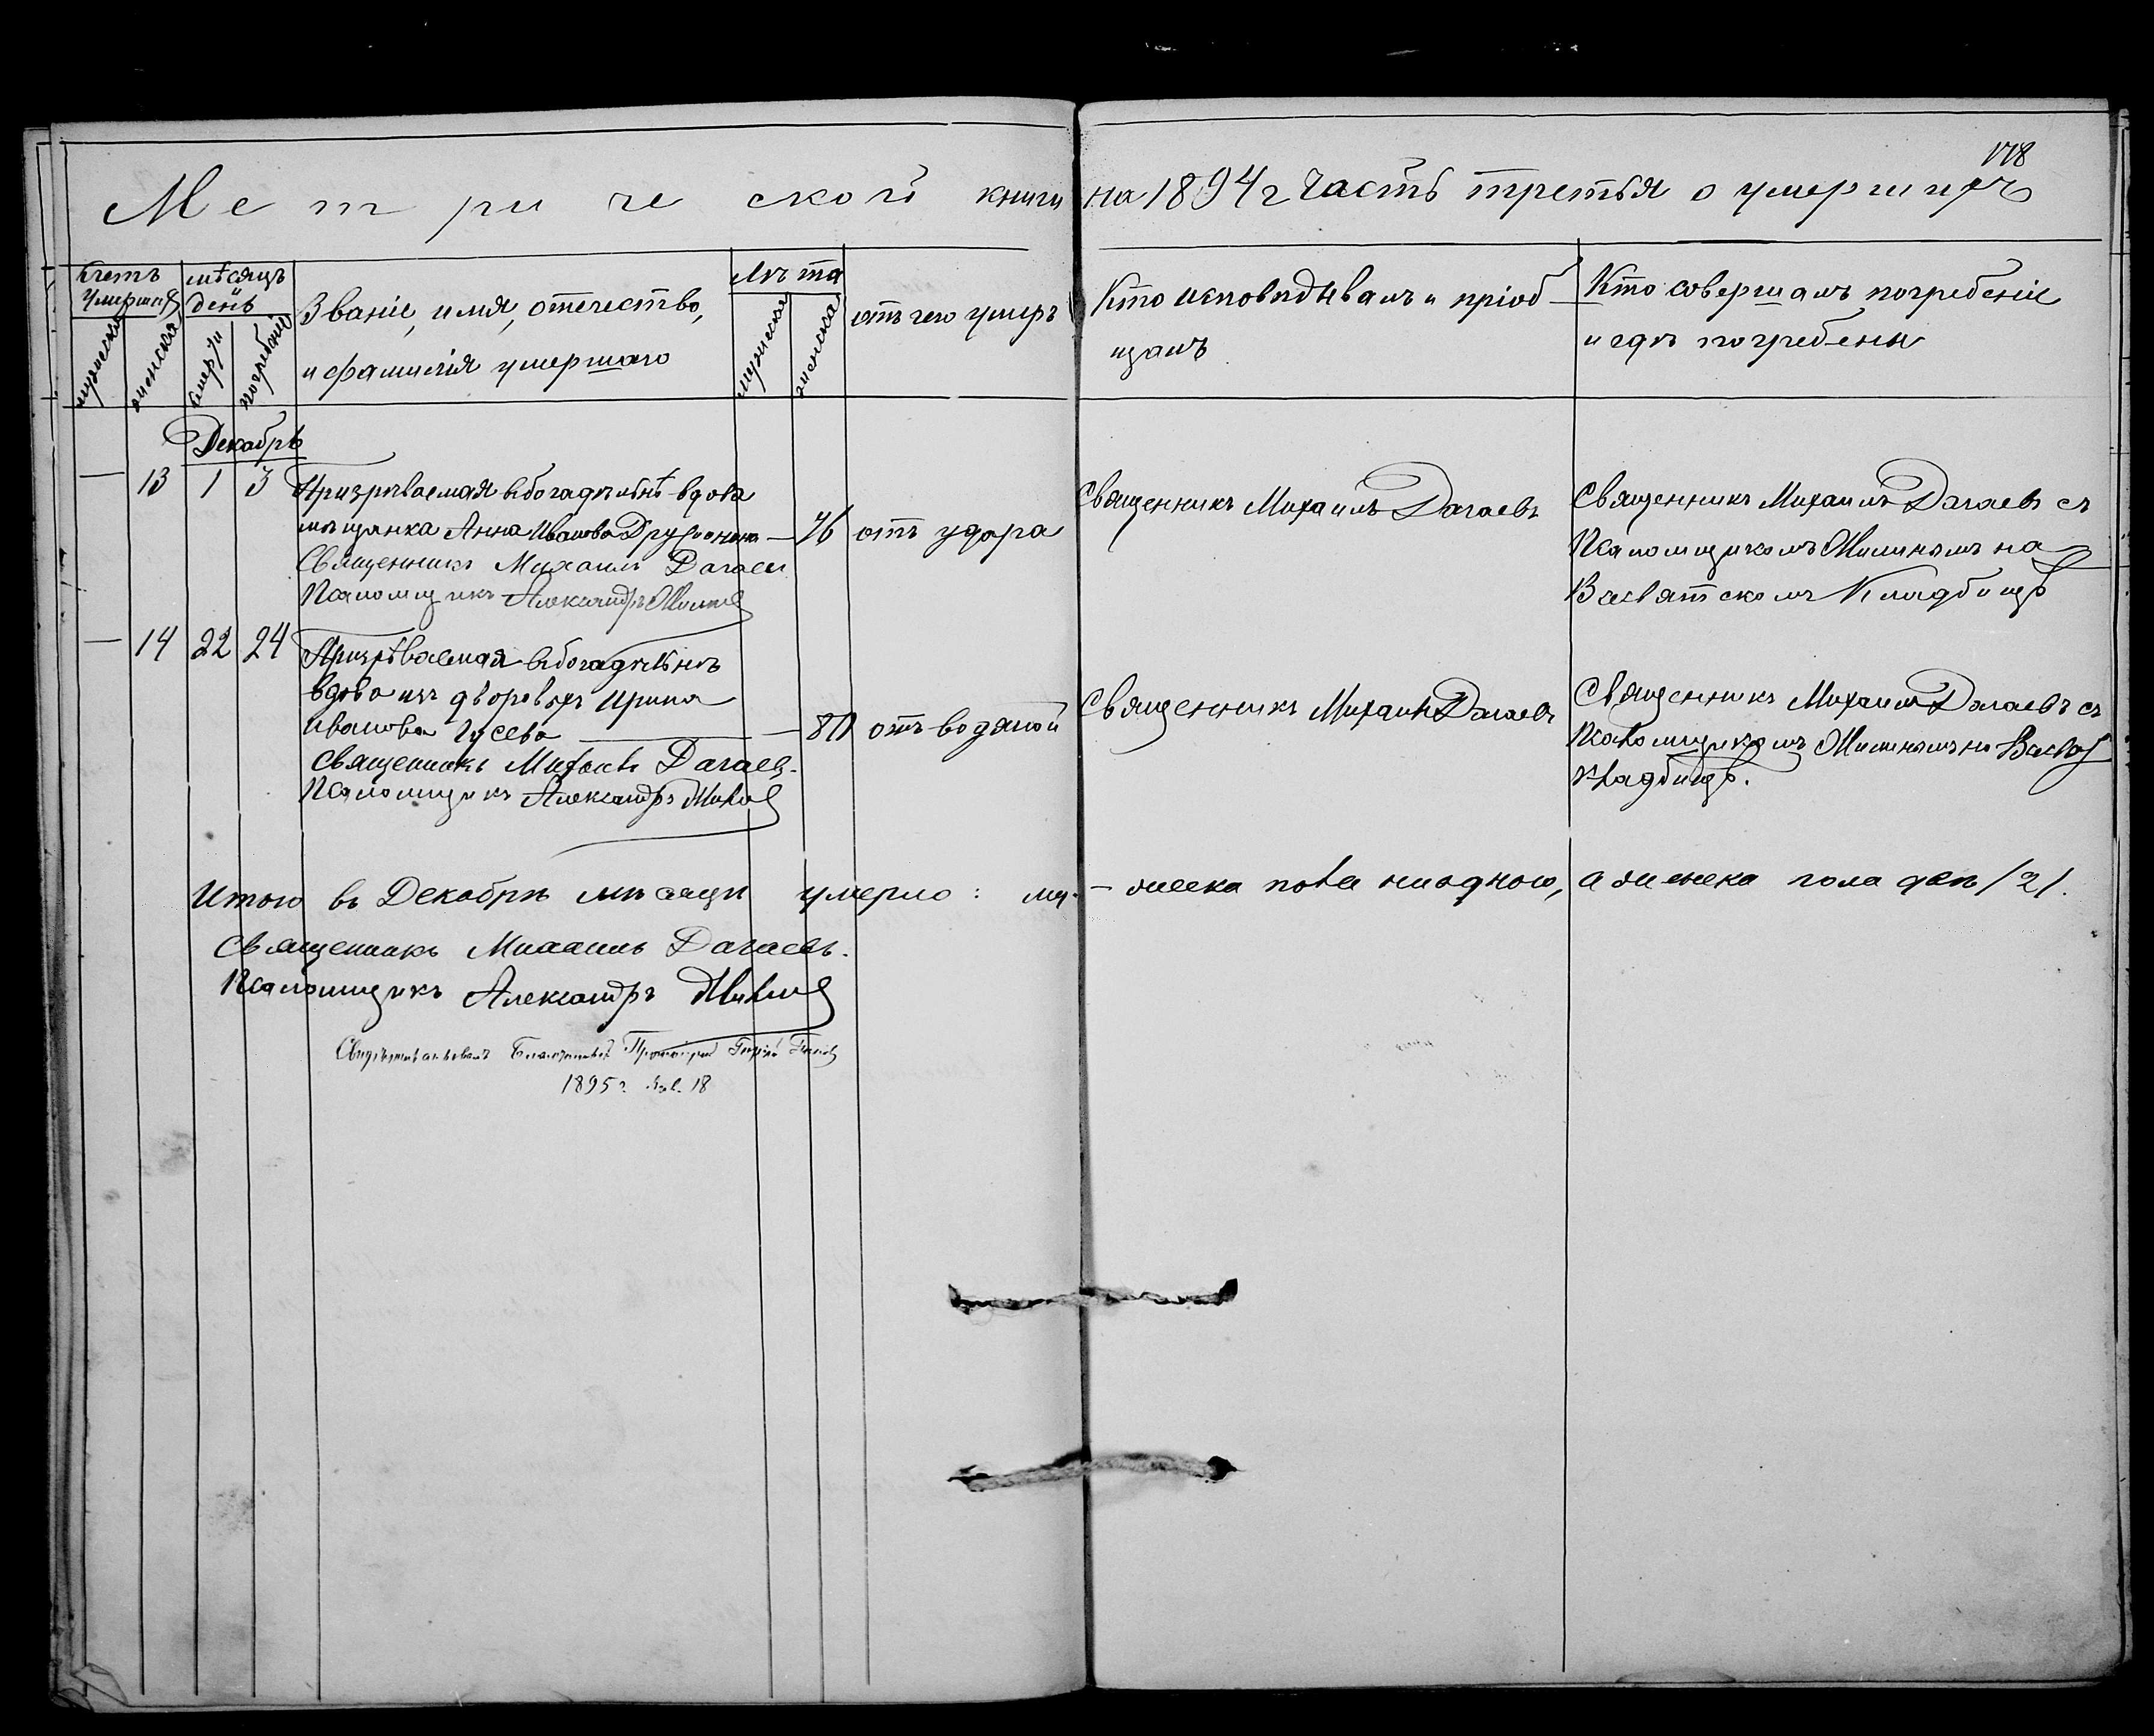 178
Метрической книги на 1894 г часть третья о умершихъ
Счетъ умершихъ
мужеска
женска
мѣсяцъ день
смерти
погребенія
Званіе, имя, отечество,
и фамилія умершаго
Лѣта
мужеска
женска
отъ чего умеръ
Кто исповѣдывалъ и пріоб-
щалъ
Кто совершалъ погребеніе
и гдѣ погребены
Декабрь
— 13 1 3 Призрѣваемая въ богадѣльнѣ вдова
мѣщанка Анна Иванова — 76 отъ удара
Священникъ Михаилъ Дагаевъ
Псаломщикъ Александръ Милинъ
Священникъ Михаилъ Дагаевъ
Священникъ Михаилъ Дагаевъ съ
Псаломщикомъ Милинымъ на
Всесвятскомъ Кладбищѣ
— 14 22 24 Призрѣваемая въ богадѣльнѣ
вдова изъ дворовыхъ Ирина
Иванова Гусева — 80 отъ водяной
Священникъ Михаилъ Дагаевъ.
Псаломщикъ Александръ Милинъ
Священникъ Михаилъ Дагаевъ
Священникъ Михаилъ Дагаевъ съ
Псаломщикомъ Милинымъ на
кладбищѣ.
Итого въ Декабрѣ мѣсяцѣ умерло: му-жеска пола ни одного, а женска пола двѣ /2/.
Священникъ Михаилъ Дагаевъ.
Псаломщикъ Александръ Милинъ
Свидѣтельствовалъ Благочинный Протоіерей
1895 г. Янв. 18